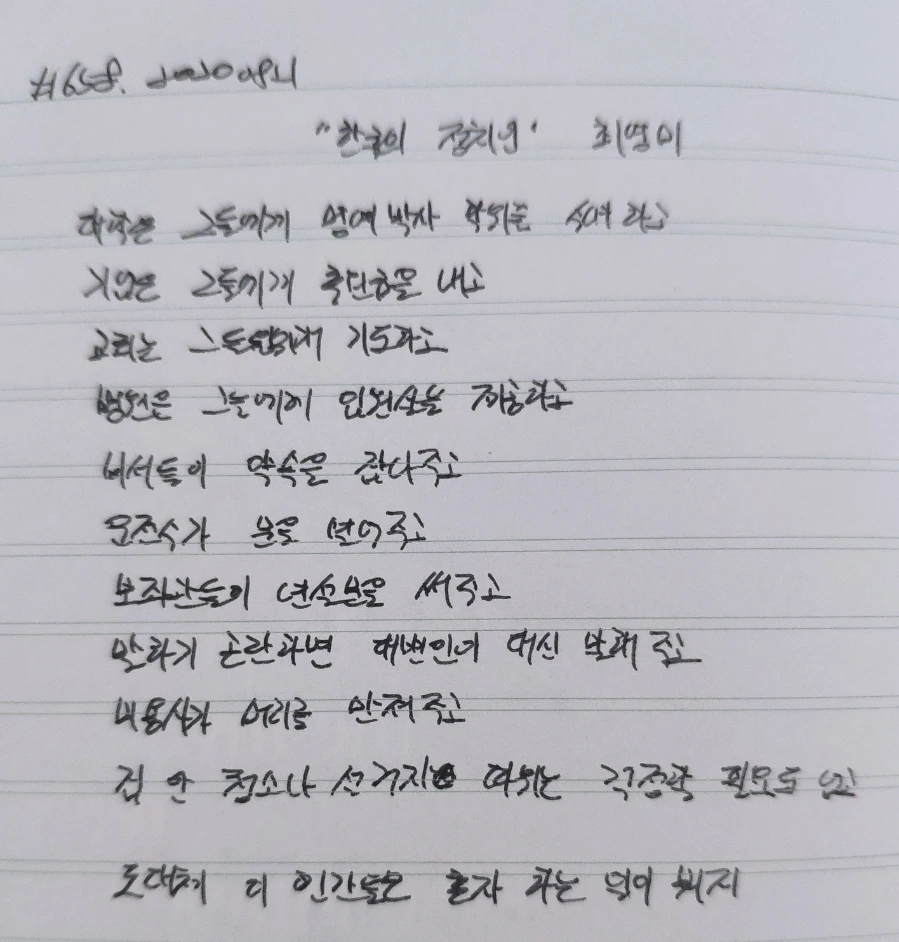 #658. 20200821
"한국의 정치인" 최영미
대학은 그들에게 명예박사 학위를 수여하고
기업은 그들에게 후원금을 내고
교회는 그들을 위해 기도하고
병원은 그들에게 입원실을 제공하고
비서들이 약속을 잡아주고
운전수가 문을 열어주고
보좌관들이 연설문을 써주고
말하기 곤란하면 대변인이 대신 말해 주고
미용사가 머리를 만져주고
집 안 청소나 설거지 따위는 걱정할 필요도 없고
도대체 이 인간들은 혼자 하는 일이 뭐지